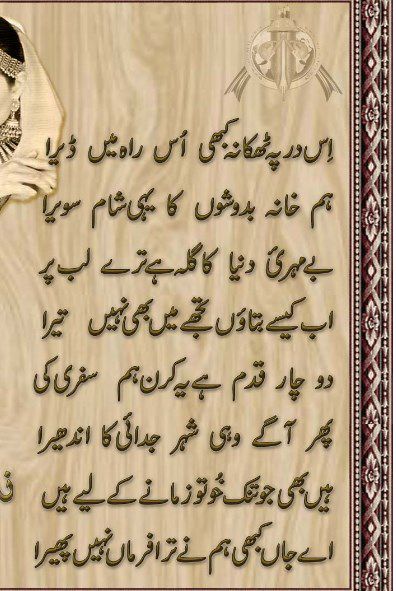 اِس در پہ ٹھکانہ کبھی اُس راہ میں ڈیرا
ہم خانہ بدوشوں کا یہی شام سویرا
بے مہریٔ دنیا کا گلہ ہے ترے لب پر
اب کیسے بتاؤں تجھے میں بھی نہیں تیرا
دو چار قدم ہے یہ کرن ہم سفری کی
پھر آگے وہی شہر جدائی کا اندھیرا
ہیں بھی جو تنک خُو تو زمانے کے لیے ہیں
اے جاں کبھی ہم نے ترا فرماں نہیں پھیرا